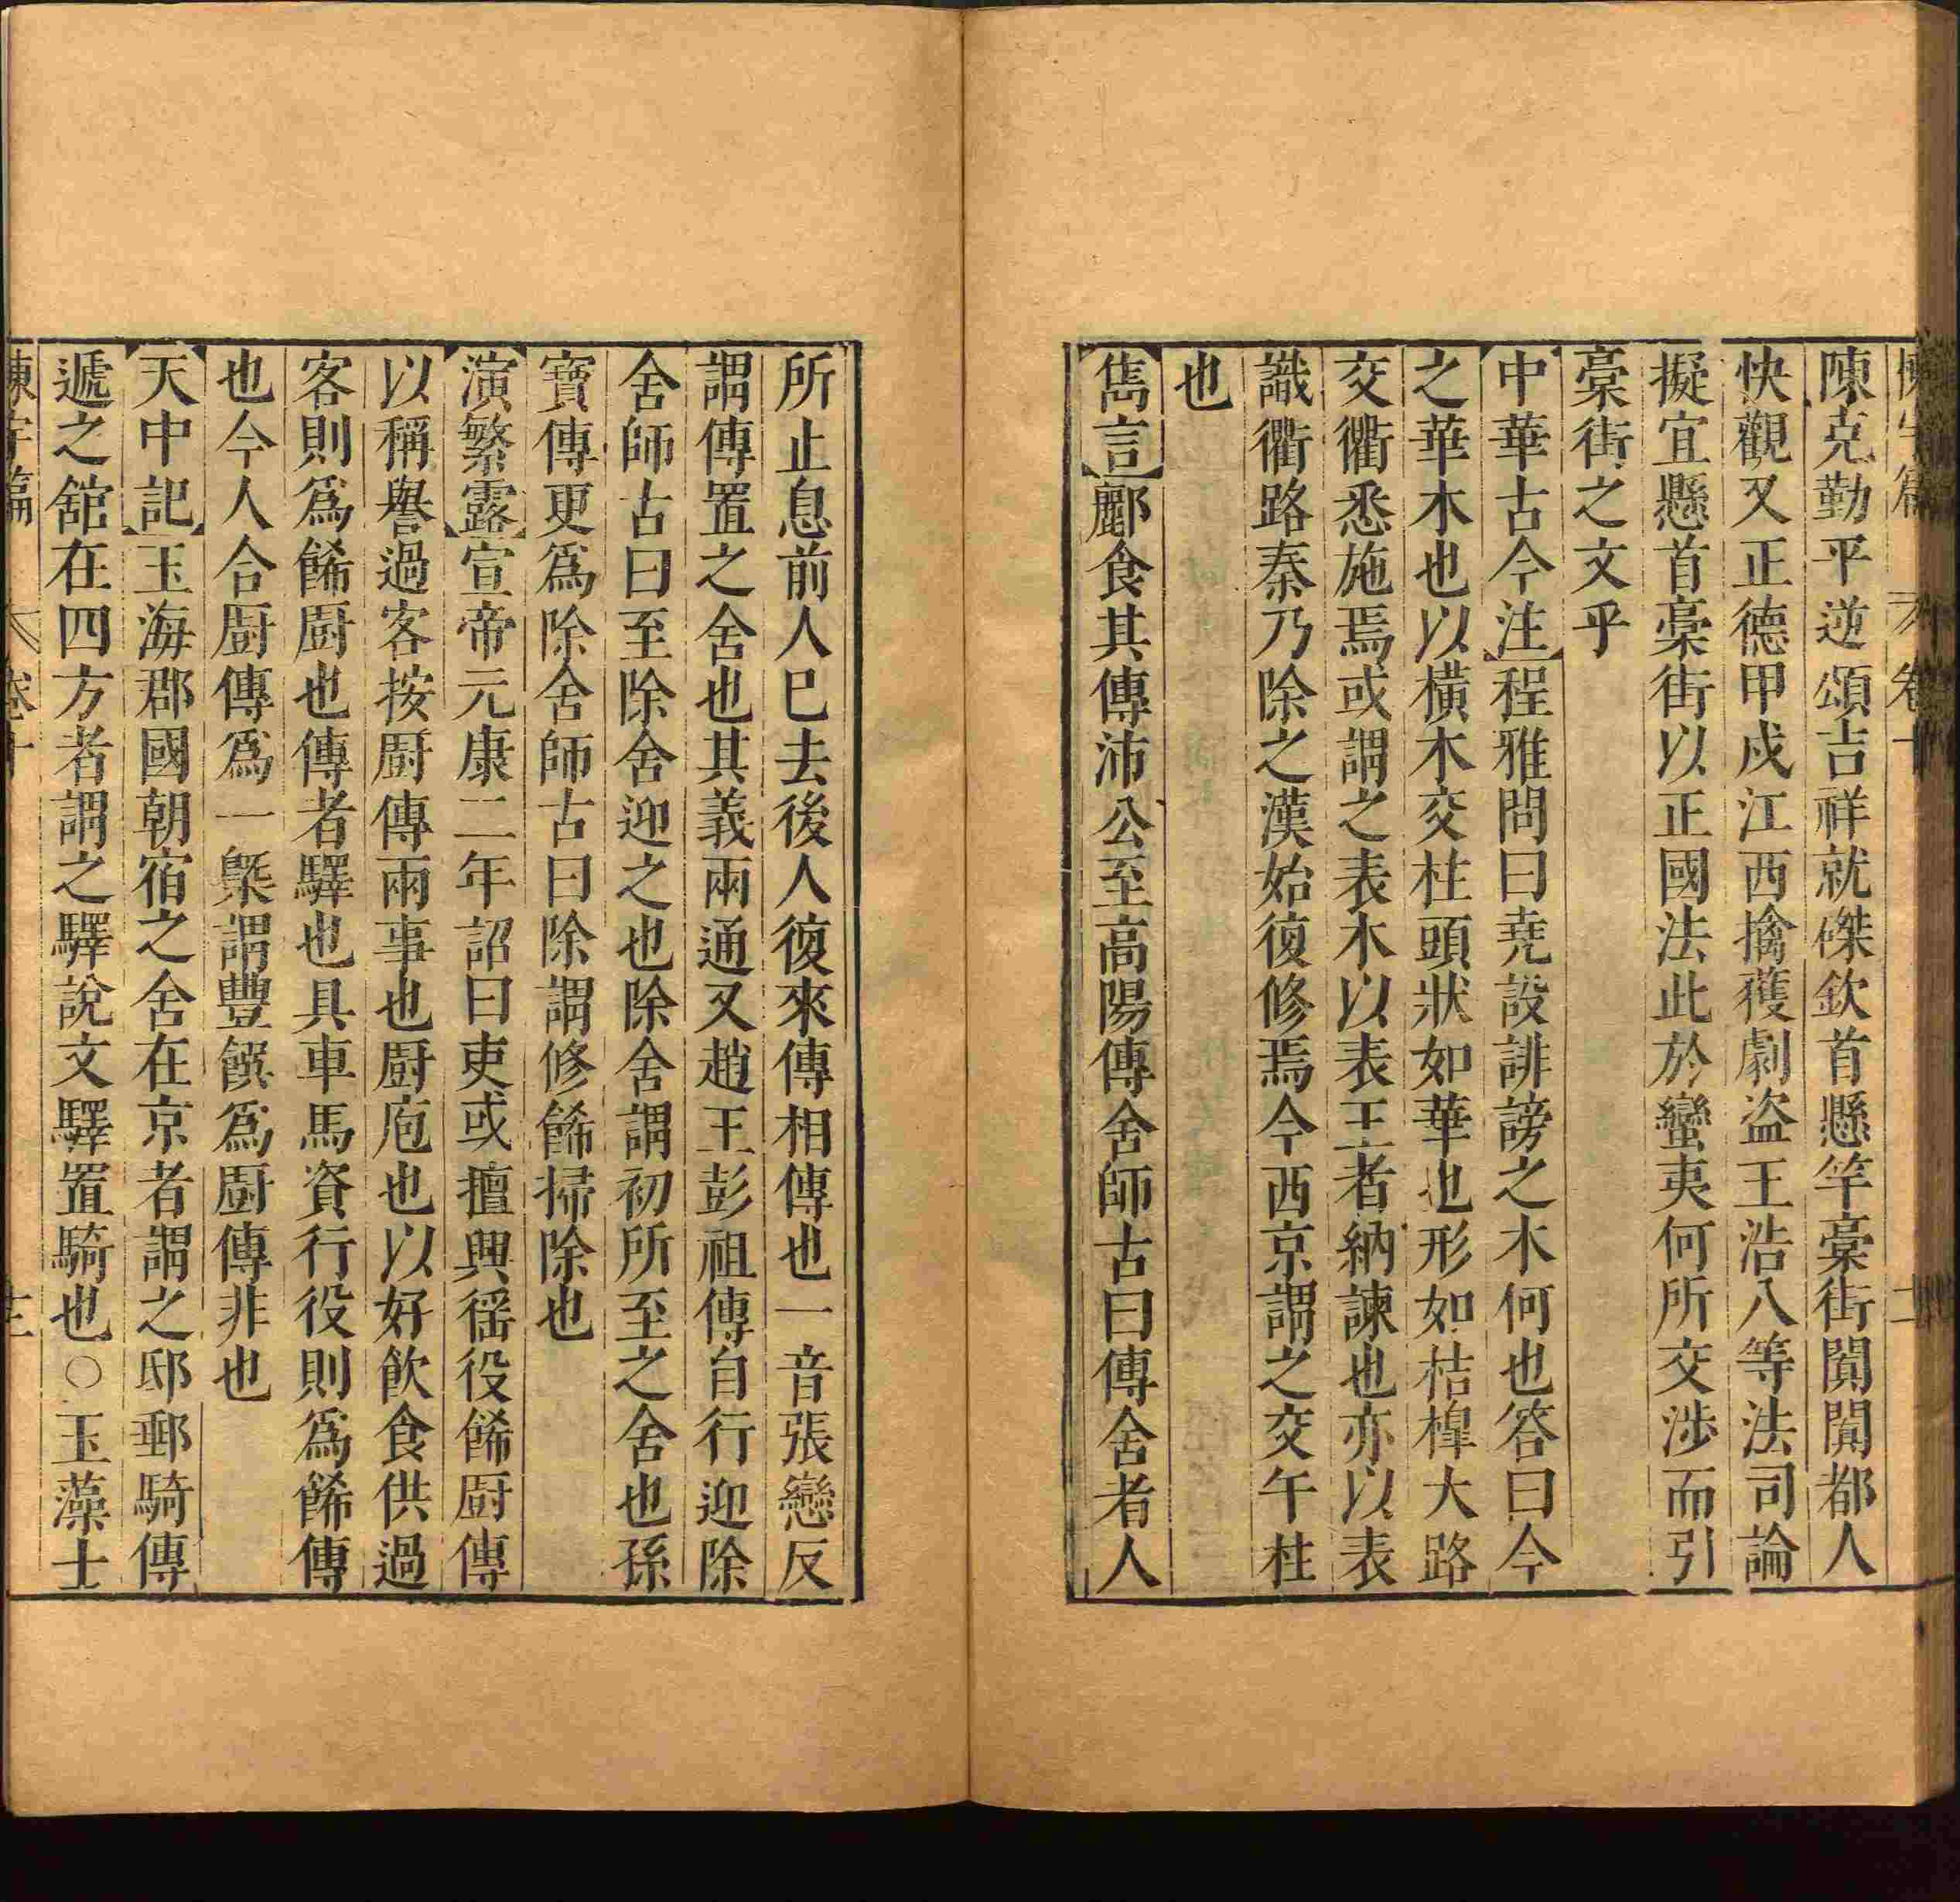 陳克勤平逆頌吉祥就傑欽首懸竿槀街閧閧都人
快觀又正德甲戌江西擒獲劇盗王浩八等法司論
擬宜懸首槀街以正國法此於蠻夷何所交涉而引
槀街之文乎
中華古今注程雅問曰堯設誹謗之木何也答曰今
之華木也以橫木交柱頭狀如華也形如桔槔大路
交衢悉施焉或謂之表木以表王者納諫也亦以表
識衢路秦乃除之漢始復修焉今西京謂之交午柱
也
雋言酈食其傳沛公至高陽傳舍師古曰傳舍者人
所止息前人巳去後人復來傳相傳也一音張戀反
謂傳置之舍也其義兩通又趙王彭祖傳自行迎除
舍師古曰至除舍迎之也除舍謂初所至之舍也孫
寶傳更爲除舍師古曰除謂修餙掃除也
演繁露宣帝元康二年詔曰吏或擅興徭役餙厨傳
以稱譽過客按厨傳兩事也厨庖也以好飲食供過
客則爲餙厨也傳者驛也具車馬資行役則爲餙傳
也今人合厨傳爲一槩謂豐饌爲厨傳非也
天中記玉海郡國朝宿之舍在京者謂之邸郵騎傳
遞之舘在四方者謂之驛說文驛置騎也○玉藻士